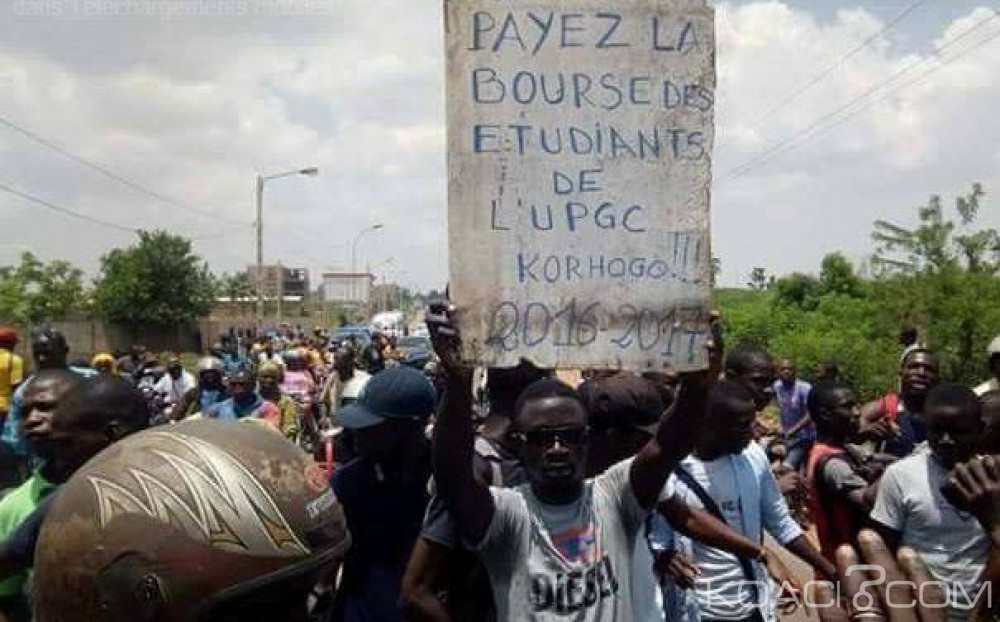 dans Téléchargements mobiles
PAYEZ LA
BOURSE DES
ETUDIANTS
DE
L'UPGC
KORHOGO!!!
2016-2017
DIESEL
KOACI.COM